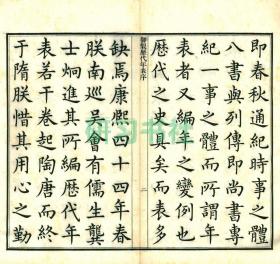 即春秋通紀時事之體
八書與列傳即尚書專
紀一事之體而所謂年
表者又編年之變例也
歷代之史具矣而表多
御製歷代年表序
二
缺焉康熙四十四年春
朕南巡吳會有儒生龔
士炯進其所編歷代年
表若干卷起陶唐而終
于隋朕惜其用心之勤